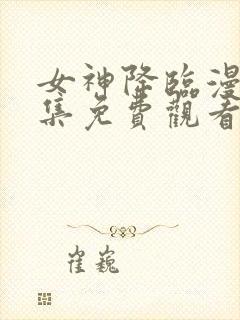 女神降臨漫
集免費觀看
崔巍